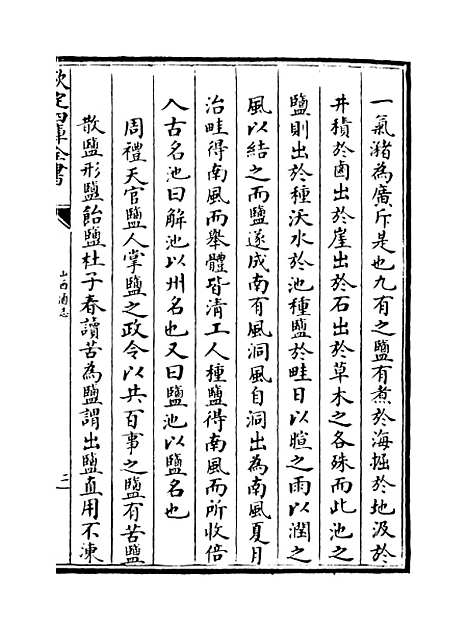 一氣潴為廣斥是也九有之鹽有煮於海掘於地汲於
井積於鹵出於崖出於石出於草木之各殊而此池之
鹽則出於種沃水於池種鹽於畦日以暄之雨以潤之
風以結之而鹽遂成南有風洞風自洞出為南風夏月
治畦得南風而舉體皆清工人種鹽得南風而所收倍
入古名池曰解池以州名也又曰鹽池以鹽名也
周禮天官鹽人掌鹽之政令以共百事之鹽有苦鹽
散鹽形鹽飴鹽杜子春讀苦為鹽謂出鹽直用不湅
欽定四庫全書
山西通志
三